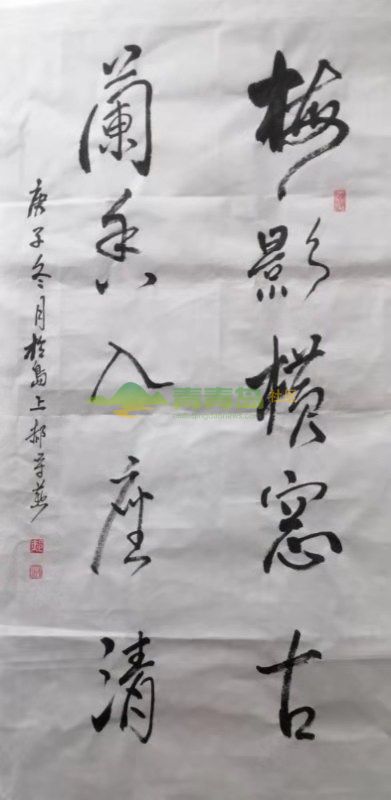 梅影横窓古
蘭香入座清
庚子冬月於島上郝守燕
青青岛社区